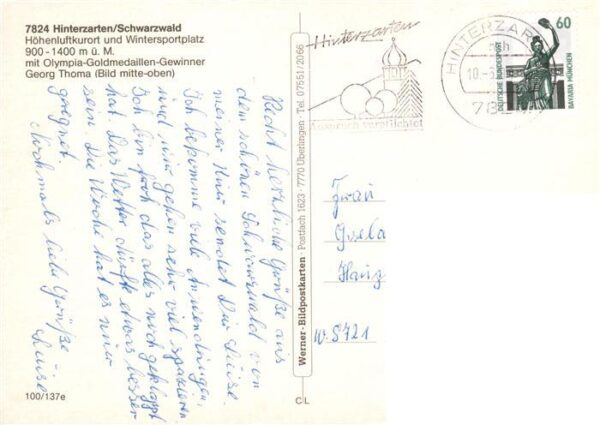 7824 Hinterzarten/Schwarzwald
Höhenluftkurort und Wintersportplatz
900 - 1400 m ü. M.
mit Olympia-Goldmedaillen-Gewinner
Georg Thoma (Bild mitte-oben)
Recht herzliche Grüße aus
dem schönen Schwarzwald von
meiner Kur sendet Dir Luise.
Ich bekomme viele Anwendungen
und wir gehen sehr viel spazieren.
Ich bin froh das alles noch geklappt
hat. Das Wetter dürfte etwas besser
sein. Die Woche hat es nur
geregnet.
Nochmals liebe Grüße
Luise
100/137e
Werner-Bildpostkarten · Postfach 1623 · 7770 Überlingen · Tel. 07551/2066
CL
Hinterzarten
Anspruch verpflichtet
HINTERZARTEN
10.-
78
60
DEUTSCHE BUNDESPOST
BAVARIA MÜNCHEN
Frau
Gisela
W. 8421